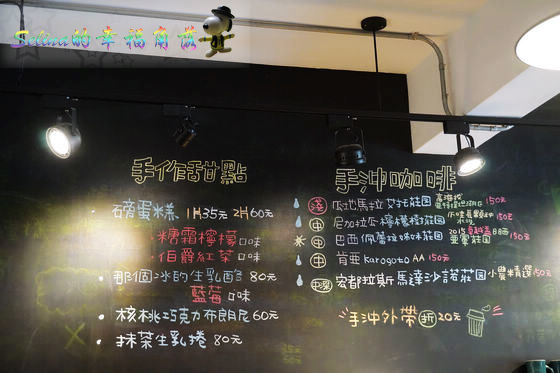 Selina的幸福角落
手作甜點
磅蛋糕 1片35元 2片60元
糖霜檸檬口味
伯爵紅茶口味
那個冰的生乳酪 80元
藍莓口味
核桃巧克力布朗尼60元
抹茶生乳捲 80元
手沖咖啡
淺 瓜地馬拉 莊園 150元
中 尼加拉瓜 檸檬樹莊園 150元
中 巴西 佩蕾拉姊妹莊園 150元
中 肯亞 Karogoto AA 150元
中深 宏都拉斯 馬達沙諾莊園 小農精選150元
手沖外帶折20元